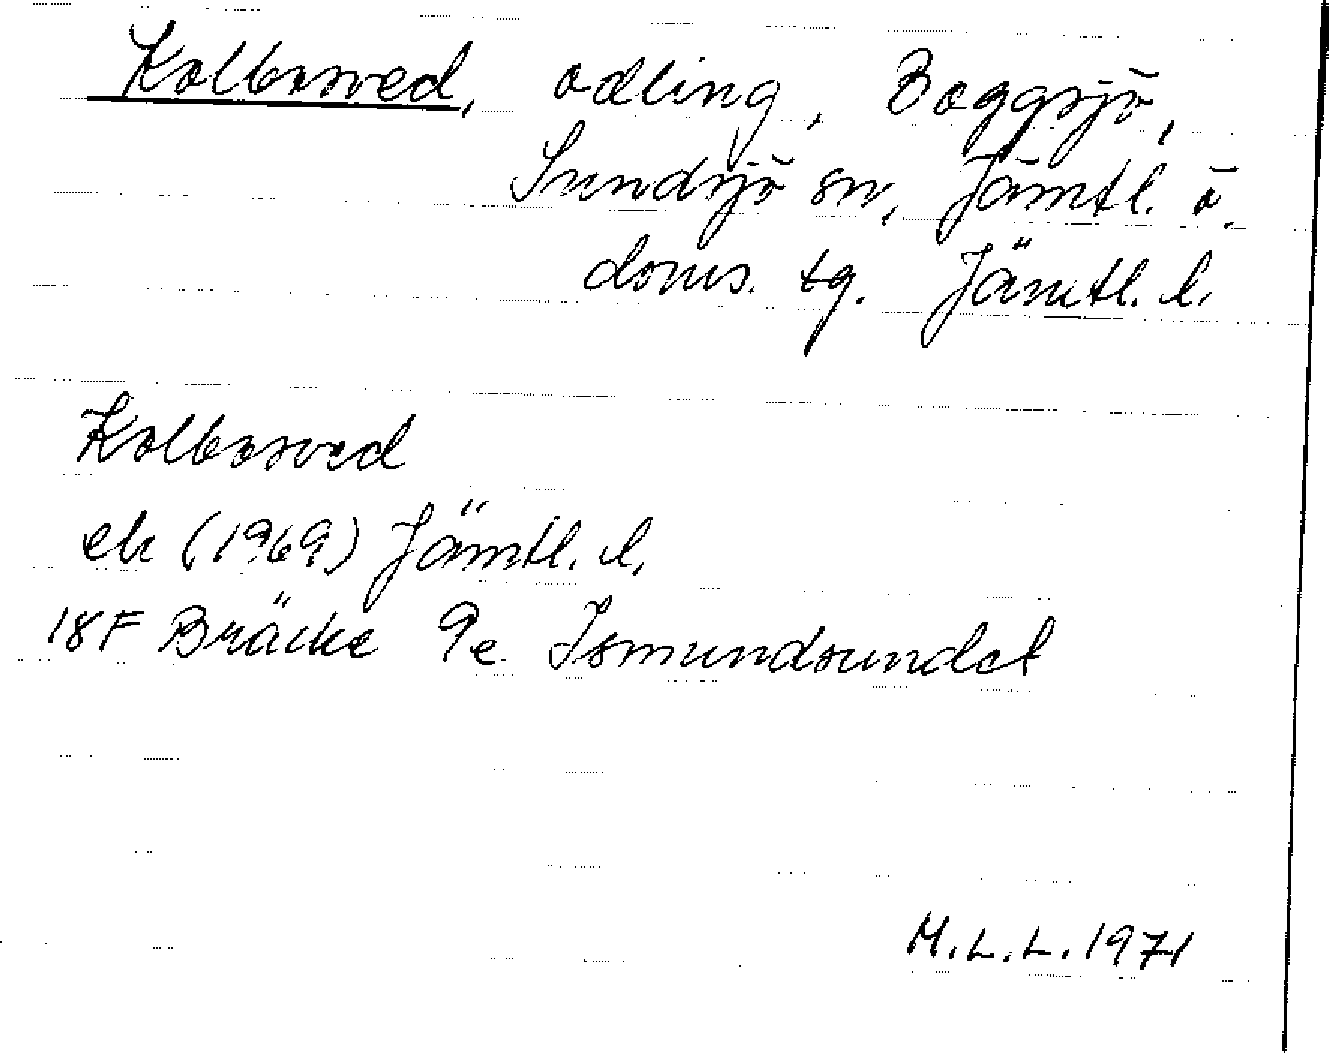 Kolbosved, odling, Boggsjö,
Sundsjö sn, Jämtl. ö.
doms. tg. Jämtl. l.
Kolbosved
ek (1969) Jämtl. l.
18F Bräcke 9e Ismundsundet
M.L.L. 1971